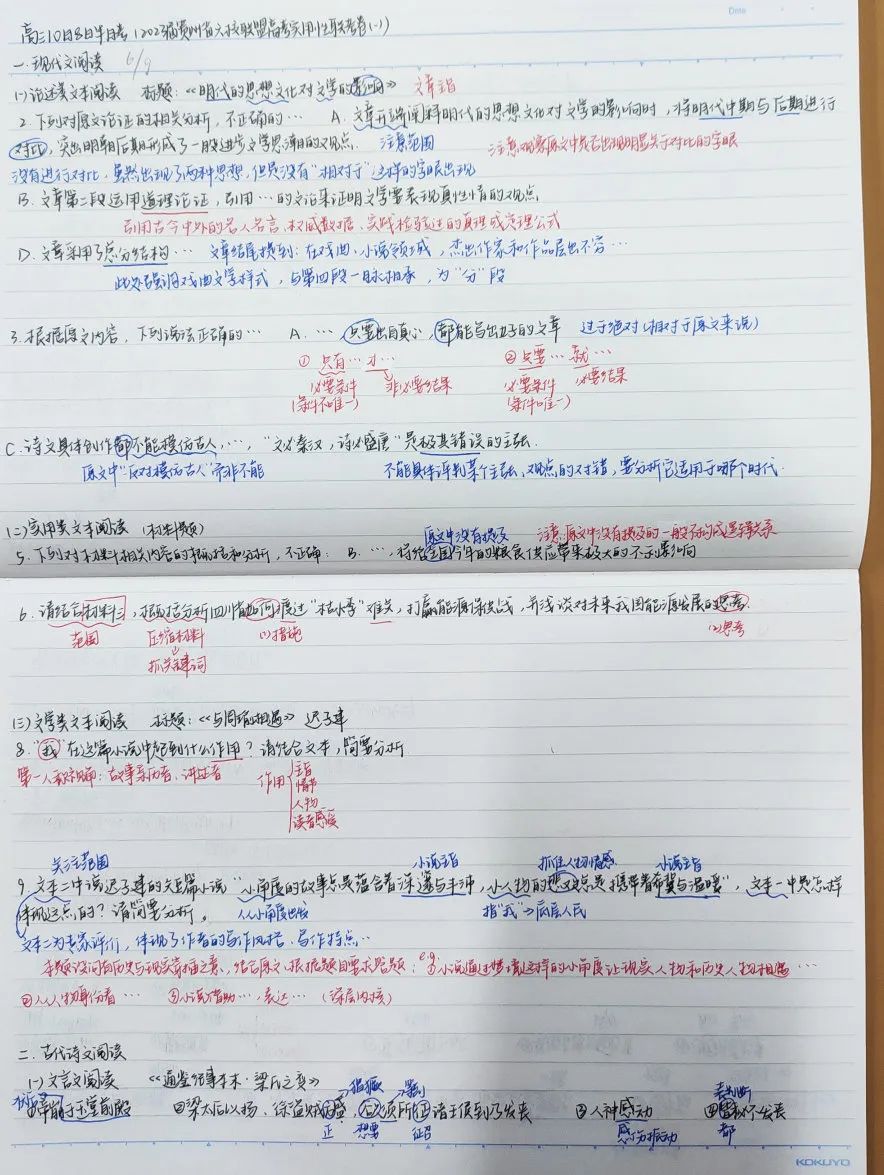 Date
高三10月8日半月考(2023届贵州省六校联盟高考实用性联考卷(一))
一.现代文阅读 6/9
(一)论述类文本阅读 标题:《明代的思想文化对文学的影响》 文章主旨
2.下列对原文论证的相关分析,不正确的… A.文章开端阐释明代的思想文化对文学的影响时,将明代中期与后期进行
对比,突出明朝后期形成了一股进步文学思潮的观点. 注意范围 注意观察原文中是否出现明显关于对比的字眼
没有进行对比,虽然出现了两种思想,但是没有“相对于”这样的字眼出现
B.文章第二段运用道理论证,引用…的文论来证明文学要表现真性情的观点
引用古今中外的名人名言、权威数据、实践检验过的真理或定理公式
D.文章采用了总分结构… 文章结尾提到:在戏曲、小说领域,杰出作家和作品层出不穷…
此处强调戏曲文学样式,与第四段一脉相承,为“分”段
3.根据原文内容,下列说法正确的… A.…,只要出自真心,都能写出好的文章 过于绝对(相对于原文来说)
①只有…才… ②只要…就…
必要条件 非必要结果 必要条件 必要结果
(条件不唯一) (条件唯一)
C.诗文具体创作都不能模仿古人,…,“文必秦汉,诗必盛唐”是极其错误的主张.
原文中“反对模仿古人”而非不能 不能具体评判某个主张、观点的对错,要分析它适用于哪个时代.
(二)实用类文本阅读 (材料题) 原文中没有提及 注意:原文中没有提及的一般不构成逻辑关系
5.下列对材料相关内容的概括和分析,不正确: B.…,将给全国今年的粮食供应带来极大的不利影响
6.请结合材料二,概括分析四川省如何度过“枯水季”难关,打赢能源保供战,并浅谈对未来我国能源发展的思考.
范围 压缩材料 (1)措施 (2)思考
抓关键词
(三)文学类文本阅读 标题:《与周瑜相遇》 迟子建
8.“我”在这篇小说中起到什么作用?请结合文本,简要分析.
第一人称视角:故事亲历者、讲述者 作用
主旨
情节
人物
读者感受
关注范围 小说主旨 抓住人物情感 小说主旨
9.文本二中说迟子建的短篇小说“小角度的故事总是蕴含着深邃与丰沛,小人物的悲欢总是携带着希冀与温暖”,文本一中是怎样
体现这点的?请简要分析。 从小角度出发 指“我”→底层人民
文本二为专家评价,体现了作者的写作风格、写作特点…
本题设问有历史与现实寄描之意,结合原文,根据题目要求答题:e.g.①小说通过梦境这样的小角度让现实人物和历史人物相遇…
②从人物身份看… ③小说借助…,表达…(深层内核)
二.古代诗文阅读
(一)文言文阅读 《通鉴纪事本末·梁氏之变》
猖獗 等到 表判断
②梁太后以扬、徐盗贼 ③人神感动
正 想要 征召 感动 都
KOKUYO